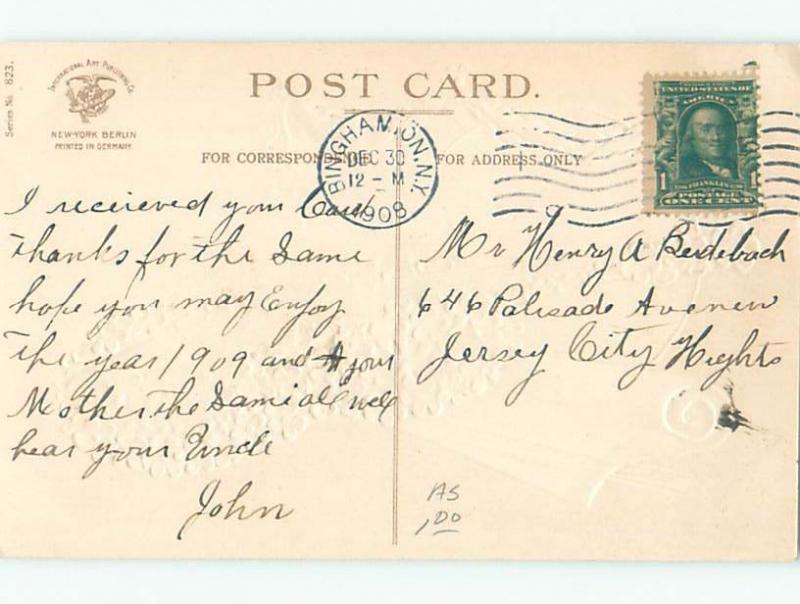 Series No. 823.
INTERNATIONAL ART PUBLISHING Co.
NEW-YORK BERLIN
PRINTED IN GERMANY
POST CARD.
FOR CORRESPONDENCE
FOR ADDRESS ONLY
BINGHAMTON, N.Y.
DEC 30
12 - M
1908
UNITED STATES OF
AMERICA
1 FRANKLIN 1
POSTAGE
ONE CENT
I recieved your Card
thanks for the Same
hope you may Enjoy
the year 1909 and your
Mother the Same all well
hear your Uncle
John
Mr Henry A Beidebach
646 Palisade Avenew
Jersey City Hights
AS
1,00